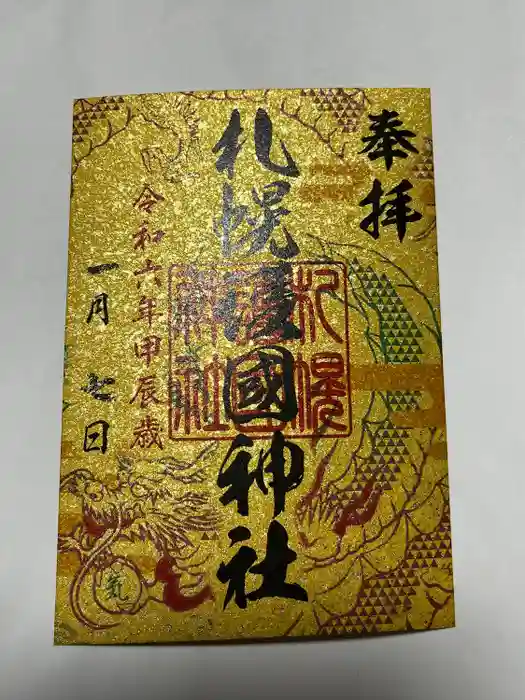 奉拝
札幌護國神社
札幌護國神社
令和六年甲辰歳
一月七日
氣